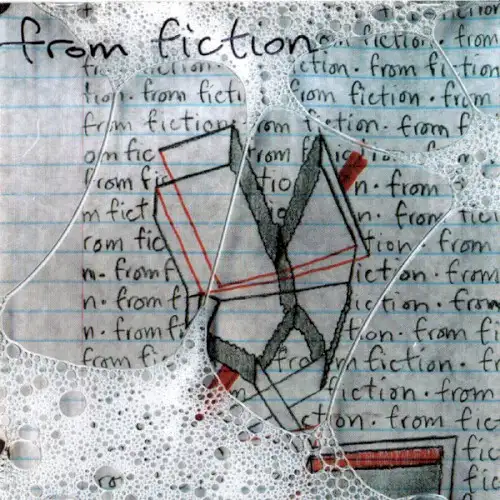 from fiction.
fiction. from
ction. from fi
tion. from ficti from fiction. from
from fiction from fiction. from f
om fic
from fi tio n. from
m fict n. from
rom fic tion. from
n. from f iction. from
n. from f iction. from
n. from f tion. from fic
from fi fro m fiction. from
n fiction. from
ction. from fic
fic
fic